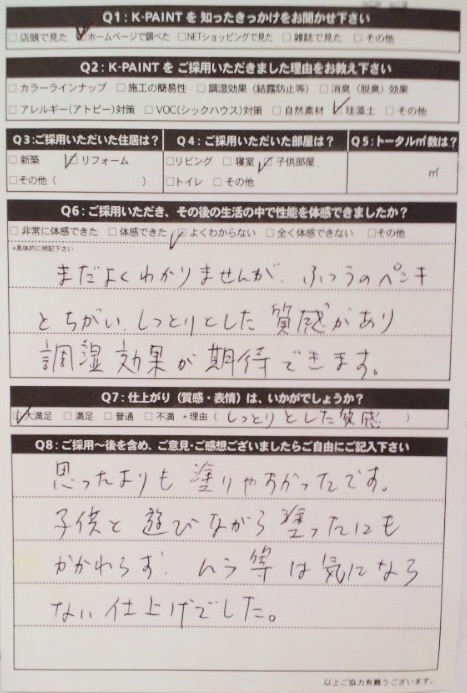 Q1：K-PAINTを 知ったきっかけをお聞かせ下さい
□店頭で見た ☑ホームページで調べた □NETショッピングで見た □雑誌で見た □その他
Q2：K-PAINTを ご採用いただきました理由をお教え下さい
□カラーラインナップ □施工の簡易性 □調湿効果（結露防止等） □消臭（脱臭）効果
□アレルギー(アトピー)対策 □VOC(シックハウス)対策 □自然素材 ☑珪藻土 □その他
Q3：ご採用いただいた住居は？ Q4：ご採用いただいた部屋は？ Q5：トータル㎡数は？
□新築 ☑リフォーム □リビング □寝室 ☑子供部屋
□その他（ ） □トイレ □その他 ㎡
Q6：ご採用いただき、その後の生活の中で性能を体感できましたか？
□非常に体感できた □体感できた ☑よくわからない □全く体感できない □その他
*具体的に明記下さい
まだよくわかりませんが、ふつうのペンキ
とちがい、しっとりとした 質感があり
調湿効果が期待できます。
Q7：仕上がり（質感・表情）は、いかがでしょうか？
☑大満足 □満足 □普通 □不満 *理由（しっとりとした質感 ）
Q8：ご採用〜後を含め、ご意見・ご感想ございましたらご自由にご記入下さい
思ったよりも 塗りやすかったです。
子供と 遊びながら 塗ったにも
かかわらず、ムラ等は気になら
ない仕上げでした。
以上ご協力有難うございます。